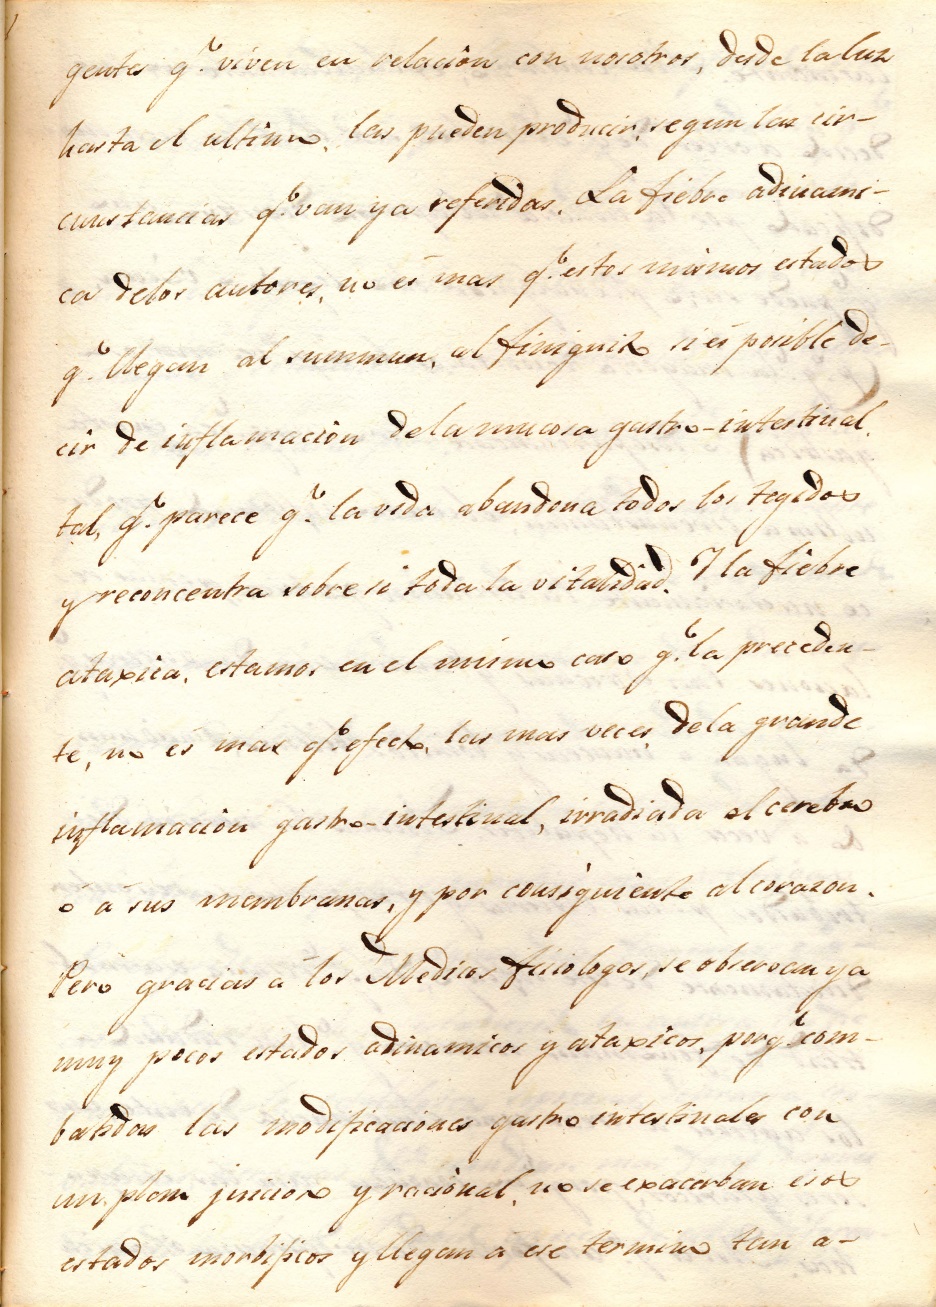 gentes q.e viven en relacion con nosotros, desde la luz
hasta el ultimo, las pueden producir, segun las cir-
cunstancias q.e van ya referidas. La fiebre adinami-
ca delos autores, no és mas q.e estos mismos estados
q.e llegan al summun, al finiguit si és posible de-
cir de inflamacion dela mucosa gastro-intestinal.
tal, q.e parece q.e la vida abandona todos los tegidos
y reconcentra sobre si toda la vitalidad. Y la fiebre
ataxica, estamos en el mismo caso q.e la preceden-
te, no es mas q.e efecto, las mas veces, dela grande
inflamacion gastro-intestinal, irradiada al cerebro
ó á sus membranas, y por consiguiente al corazon.
Pero gracias á los Medicos fisiologos, se observan ya
muy pocos estados adinamicos y ataxicos, porq.e com-
batidas las modificaciones gastro intestinales con
un plan juicioso y racional, no se exacerban esos
estados morbificos y llegan á ese termino tan a-